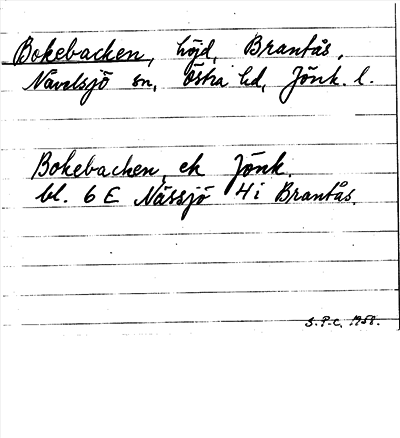 Bokebacken, höjd, Brantås,
Nävelsjö sn, Östra hd, Jönk. l.
Bokebacken, ek Jönk.
bl. 6 E Nässjö 4 i Brantås.
S.P-C. 1958.